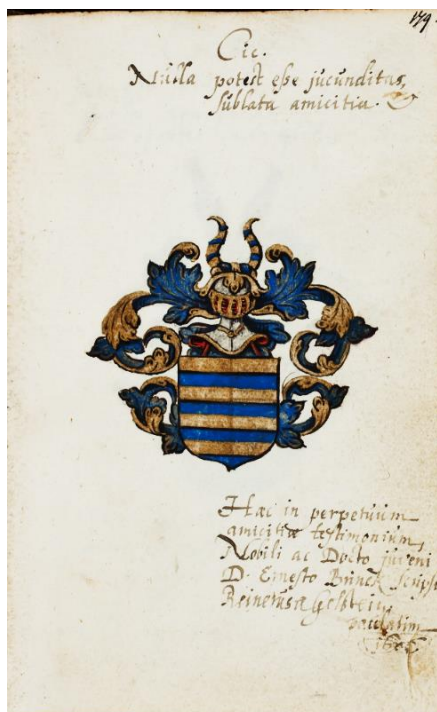 179
Cic.
Nulla potest esse jucunditas,
sublata amicitia.
Haec in perpetuum
amicitiae testimonium,
Nobili ac Docto juveni
D. Ernesto Brinck scrips.
Reinerus a
paulatim